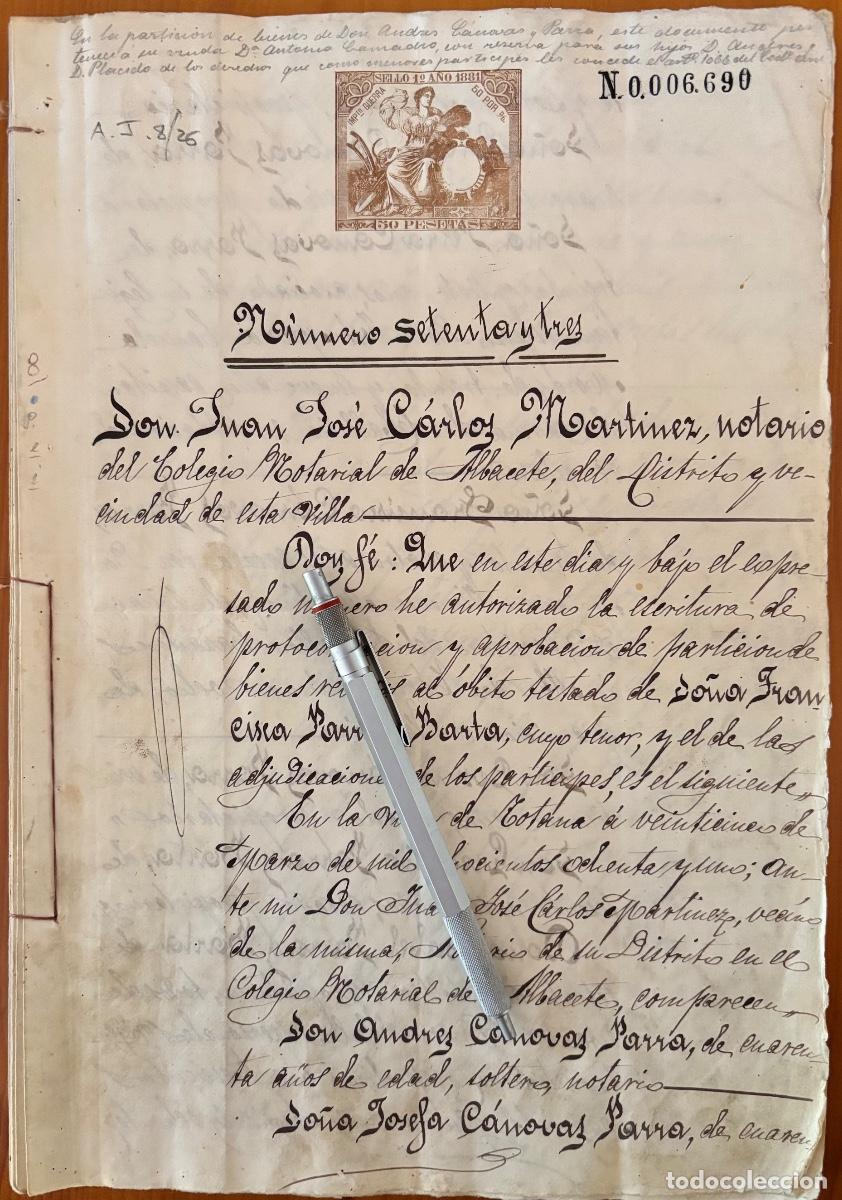 En la partición de bienes de Don Andres Cánovas y Parra, este documento per
tenece á su viuda Dª Antonia Camacho, con reserva para sus hijos D. Andres y
D. Placido de los derechos que como menores participes les concede el artº 1066 del Codº civil
SELLO 1º AÑO 1881
IMPTO GUERRA
50 POR %
50 PESETAS
N.0,006.690
A. J. 8/26
Número setenta y tres
Don Juan José Cárlos Martinez, notario
del Colegio Notarial de Albacete, del Distrito y ve-
cindad de esta Villa
Doy fé: Que en este dia y bajo el expre-
sado número he autorizado la escritura de
protoco cion y aprobacion de particion de
bienes re s al óbito testado de Doña Fran-
cisca Parr Barta, cuyo tenor, y el de las
adjudicaciones de los participes, es el siguiente
En la V de Totana á veinticinco de
Marzo de mil hocientos ochenta y uno; an-
te mi Don Jua José Cárlos Martinez, vecino
de la misma, N rio de su Distrito en el
Colegio Notarial de Albacete, comparecen
Don Andres Cánovas Parra, de cuaren-
ta años de edad, soltero, notario
Doña Josefa Cánovas Parra, de cuaren
todocoleccion